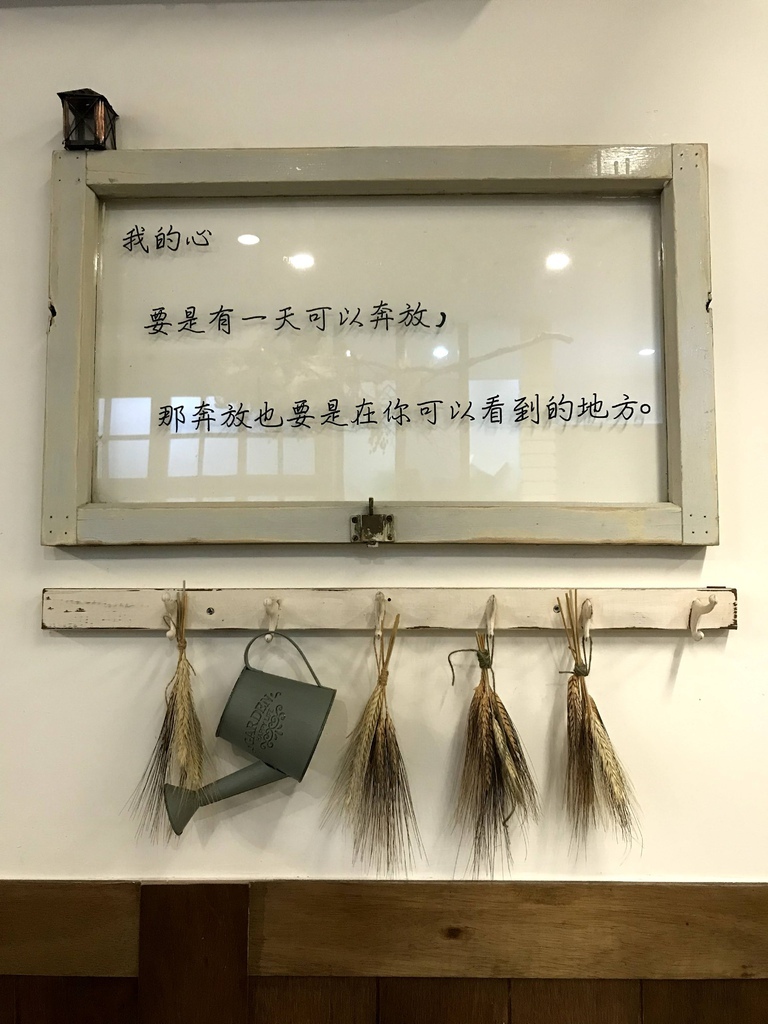 我的心
要是有一天可以奔放，
那奔放也要是在你可以看到的地方。
GARDEN